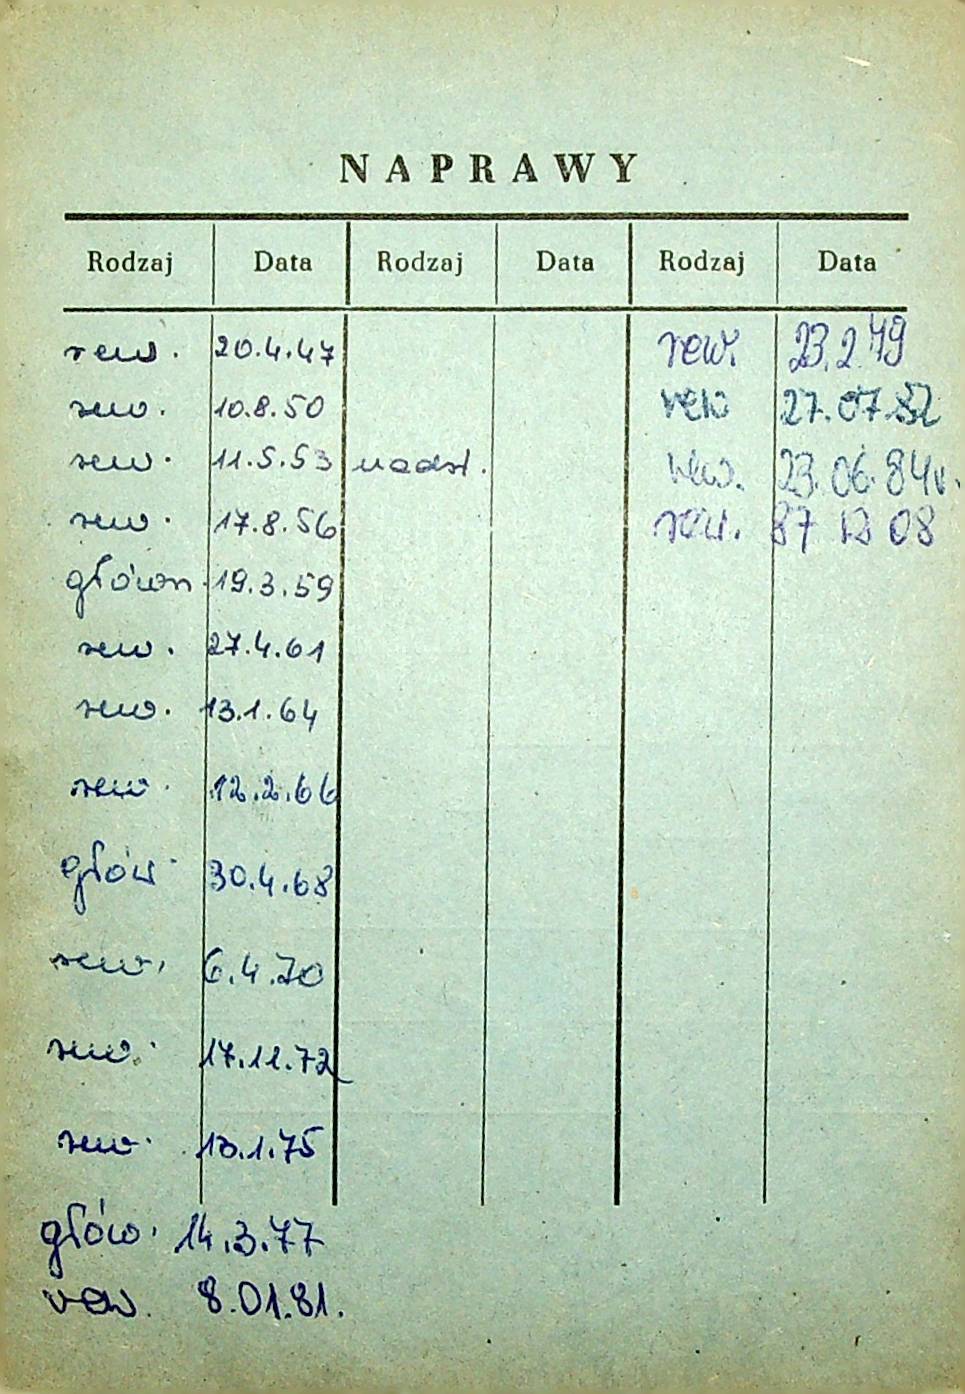 NAPRAWY
Rodzaj Data Rodzaj Data Rodzaj Data
rew. 20.4.47 rew. 23.2.79
rew. 10.8.50 rew 27.07.82
rew. 11.5.53 nadst. rew. 23.06.84r.
rew. 17.8.56 rew. 87 12 08
główn. 19.3.59
rew. 27.4.61
rew. 13.1.64
rew. 12.2.66
głów. 30.4.68
rew. 6.4.70
rew. 17.11.72
rew. 13.1.75
głów. 14.3.77
rew. 8.01.81.